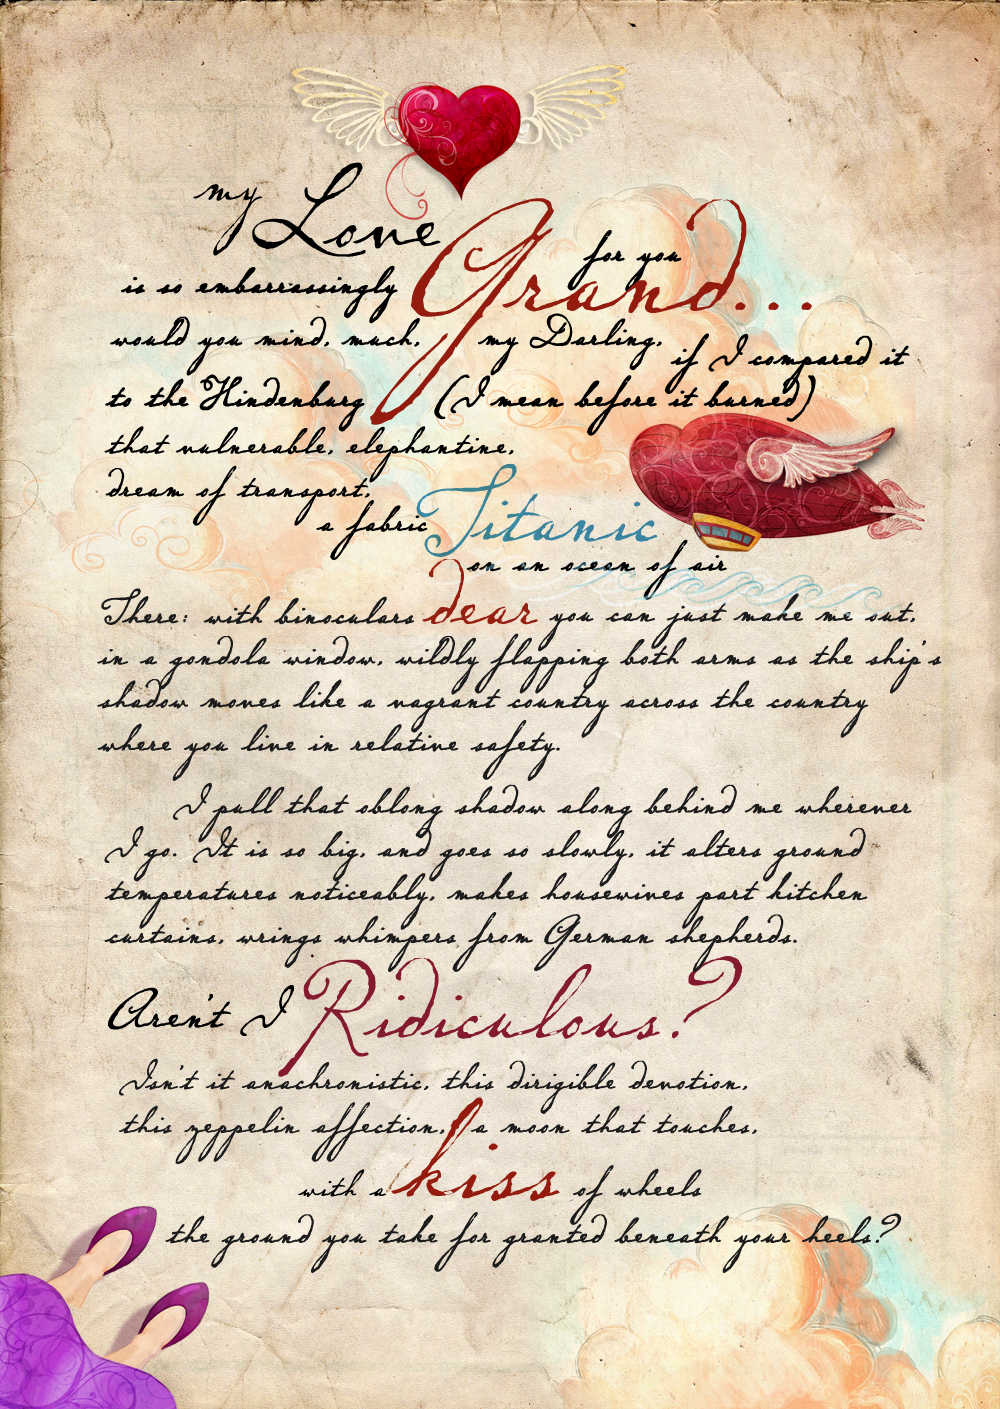 my Love for you
is so embarrassingly Grand...
would you mind, much, my Darling,
if I compared it
to the Hindenburg (I mean before it burned)
that vulnerable, elephantine,
dream of transport,
a fabric Titanic
on an ocean of air
There: with binoculars dear you can just make me out,
in a gondola window, wildly flapping both arms as the ship's
shadow moves like a vagrant country across the country
where you live in relative safety.
I pull that oblong shadow along behind me wherever
I go. It is so big, and goes so slowly, it alters ground
temperatures noticeably, makes housewives part kitchen
curtains, wrings whimpers from German shepherds.
Aren't I Ridiculous?
Isn't it anachronistic, this dirigible devotion,
this zeppelin affection, a moon that touches,
with a kiss of wheels
the ground you take for granted beneath your heels?